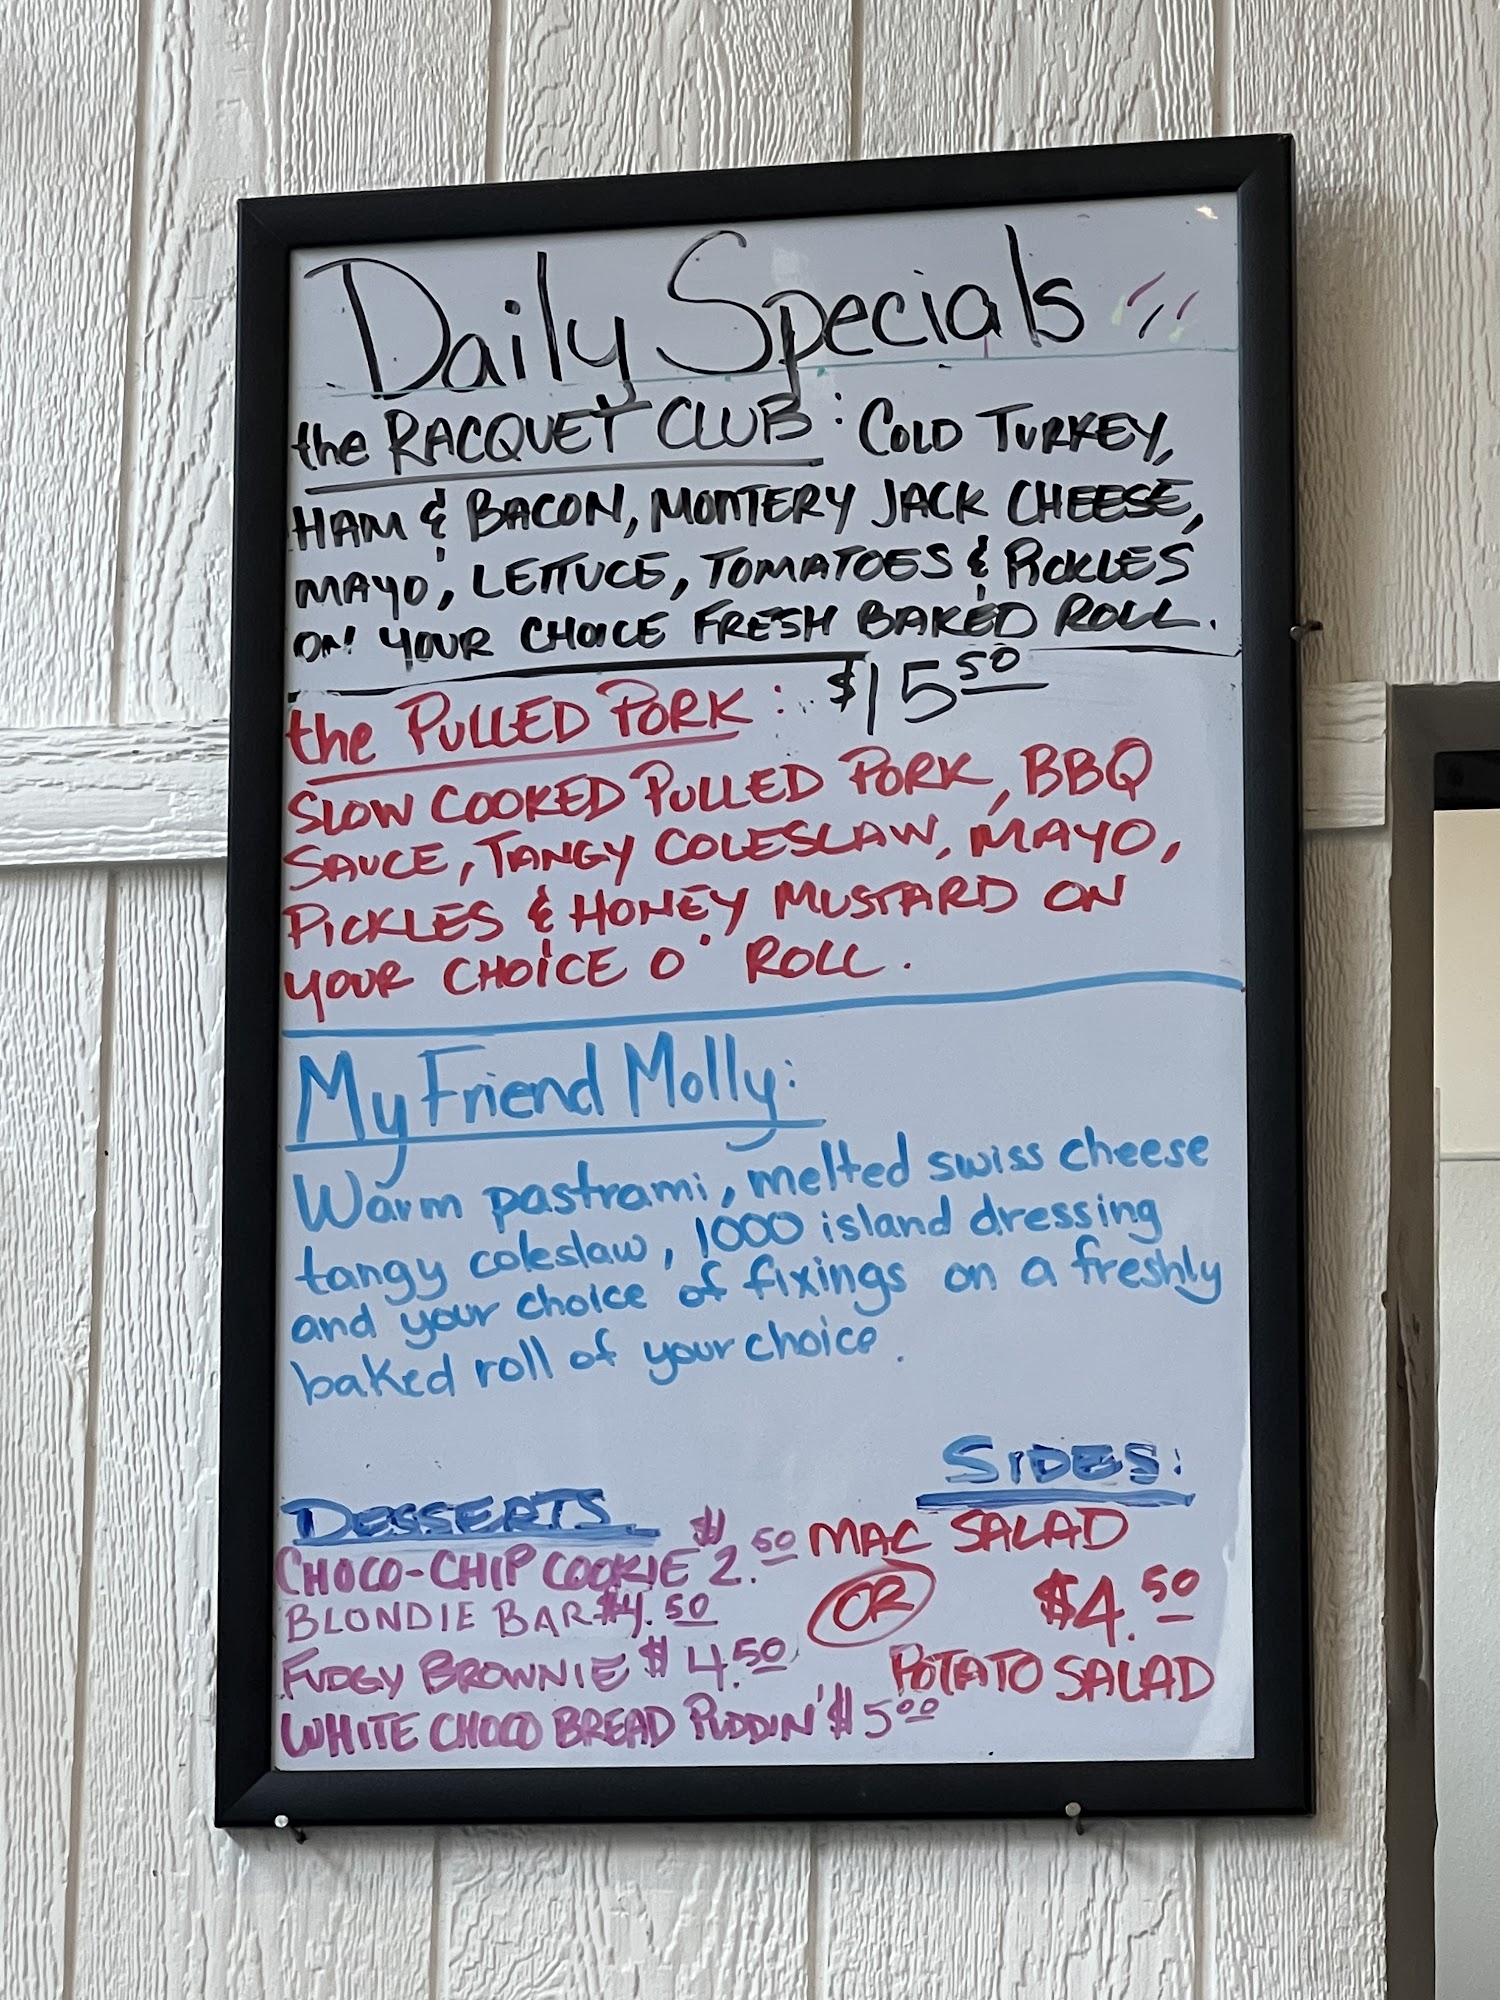 Daily Specials
the RACQUET CLUB: COLD TURKEY,
HAM & BACON, MONTERY JACK CHEESE,
MAYO, LETTUCE, TOMATOES & PICKLES
ON YOUR CHOICE FRESH BAKED ROLL.
$15.50
the PULLED PORK:
SLOW COOKED PULLED PORK, BBQ
SAUCE, TANGY COLESLAW, MAYO,
PICKLES & HONEY MUSTARD ON
YOUR CHOICE O' ROLL.
My Friend Molly:
Warm pastrami, melted swiss cheese
tangy coleslaw, 1000 island dressing
and your choice of fixings on a freshly
baked roll of your choice.
DESSERTS
CHOCO-CHIP COOKIE $2.50
BLONDIE BAR $4.50
FUDGY BROWNIE $4.50
WHITE CHOCO BREAD PUDDIN' $5.00
SIDES:
MAC SALAD
OR $4.50
POTATO SALAD